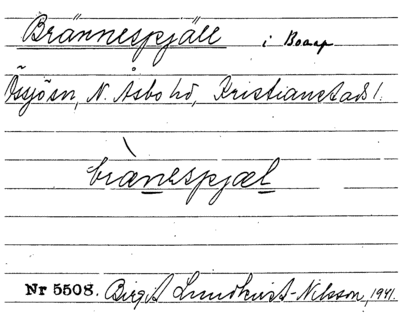 Brännespjäll i Boarp
Össjö sn, N. Åsbo hd, Kristianstads l.
brànespjæl
Nr 5508. Birgit Lundkvist-Nilsson, 1941.